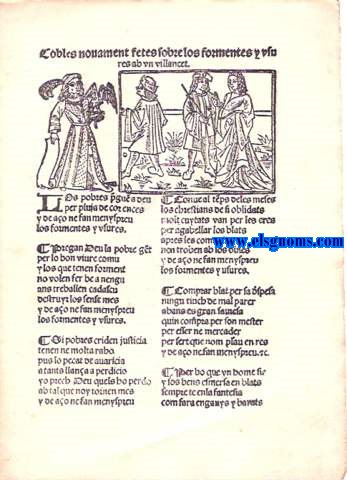 Cobles nouament fetes sobre los formentes y vsu
res ab vn villancet.
LOs pobres pguē a deu
per pluja de correnćes
y de aço ne fan menyspreu
los formentes y vsures.
Pregan Deu la pobre gēt
per lo bon viure comu
y los que tenen forment
no volen fer be a nengu
ans treballen cadascu
destruyr los sense mes
y de aço ne fan menyspreu
los formentes y vsures.
Si pobres criden justicia
tenen ne molta rabo
puix lo pecat de auaricia
a tants llança a perdicio
yo prech Deu quels ho perdo
ab tal que noy tornen mes
y de aço ne fan menyspreu
al tēps deles meses
los chrestians de si oblidats
tots cuytats van per les eres
per agabellar los blats
apres les
pon troben ab los obles
y de aço ne fan menyspreu
los formentes y vsures.
www.elsgnoms.com
Comprar blat per sa despesa
ningu tinch de mal parer
abans es gran sauiesa
quin compra per son mester
per esser ne mercader
per sert que nom plau en res
y de aço ne fan menyspreu.zc.
Per bo que vn home sie
y sos bens esmersa en blats
sempre te en la fantesia
com fara enganys y barats